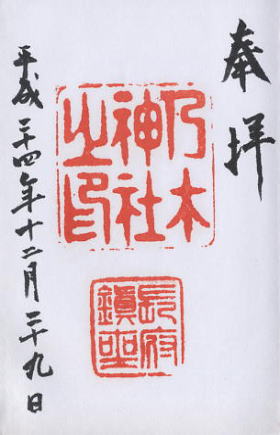 奉拝
乃木
神社
之印
長府
鎮座
平成二十四年十二月二十九日